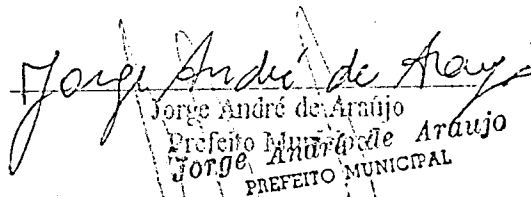 Jorge André de Araujo
Jorge André de Araújo
Prefeito Municipal
Jorge André de Araujo
PREFEITO MUNICIPAL